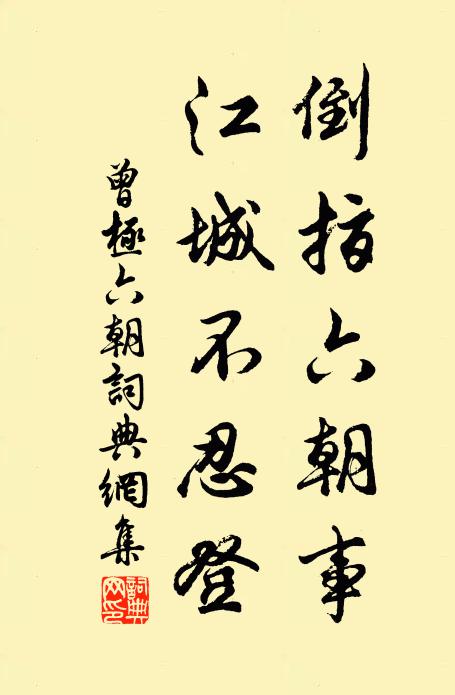 倒指六朝事
江城不忍登
曾極六朝詞典網集
詞典網印